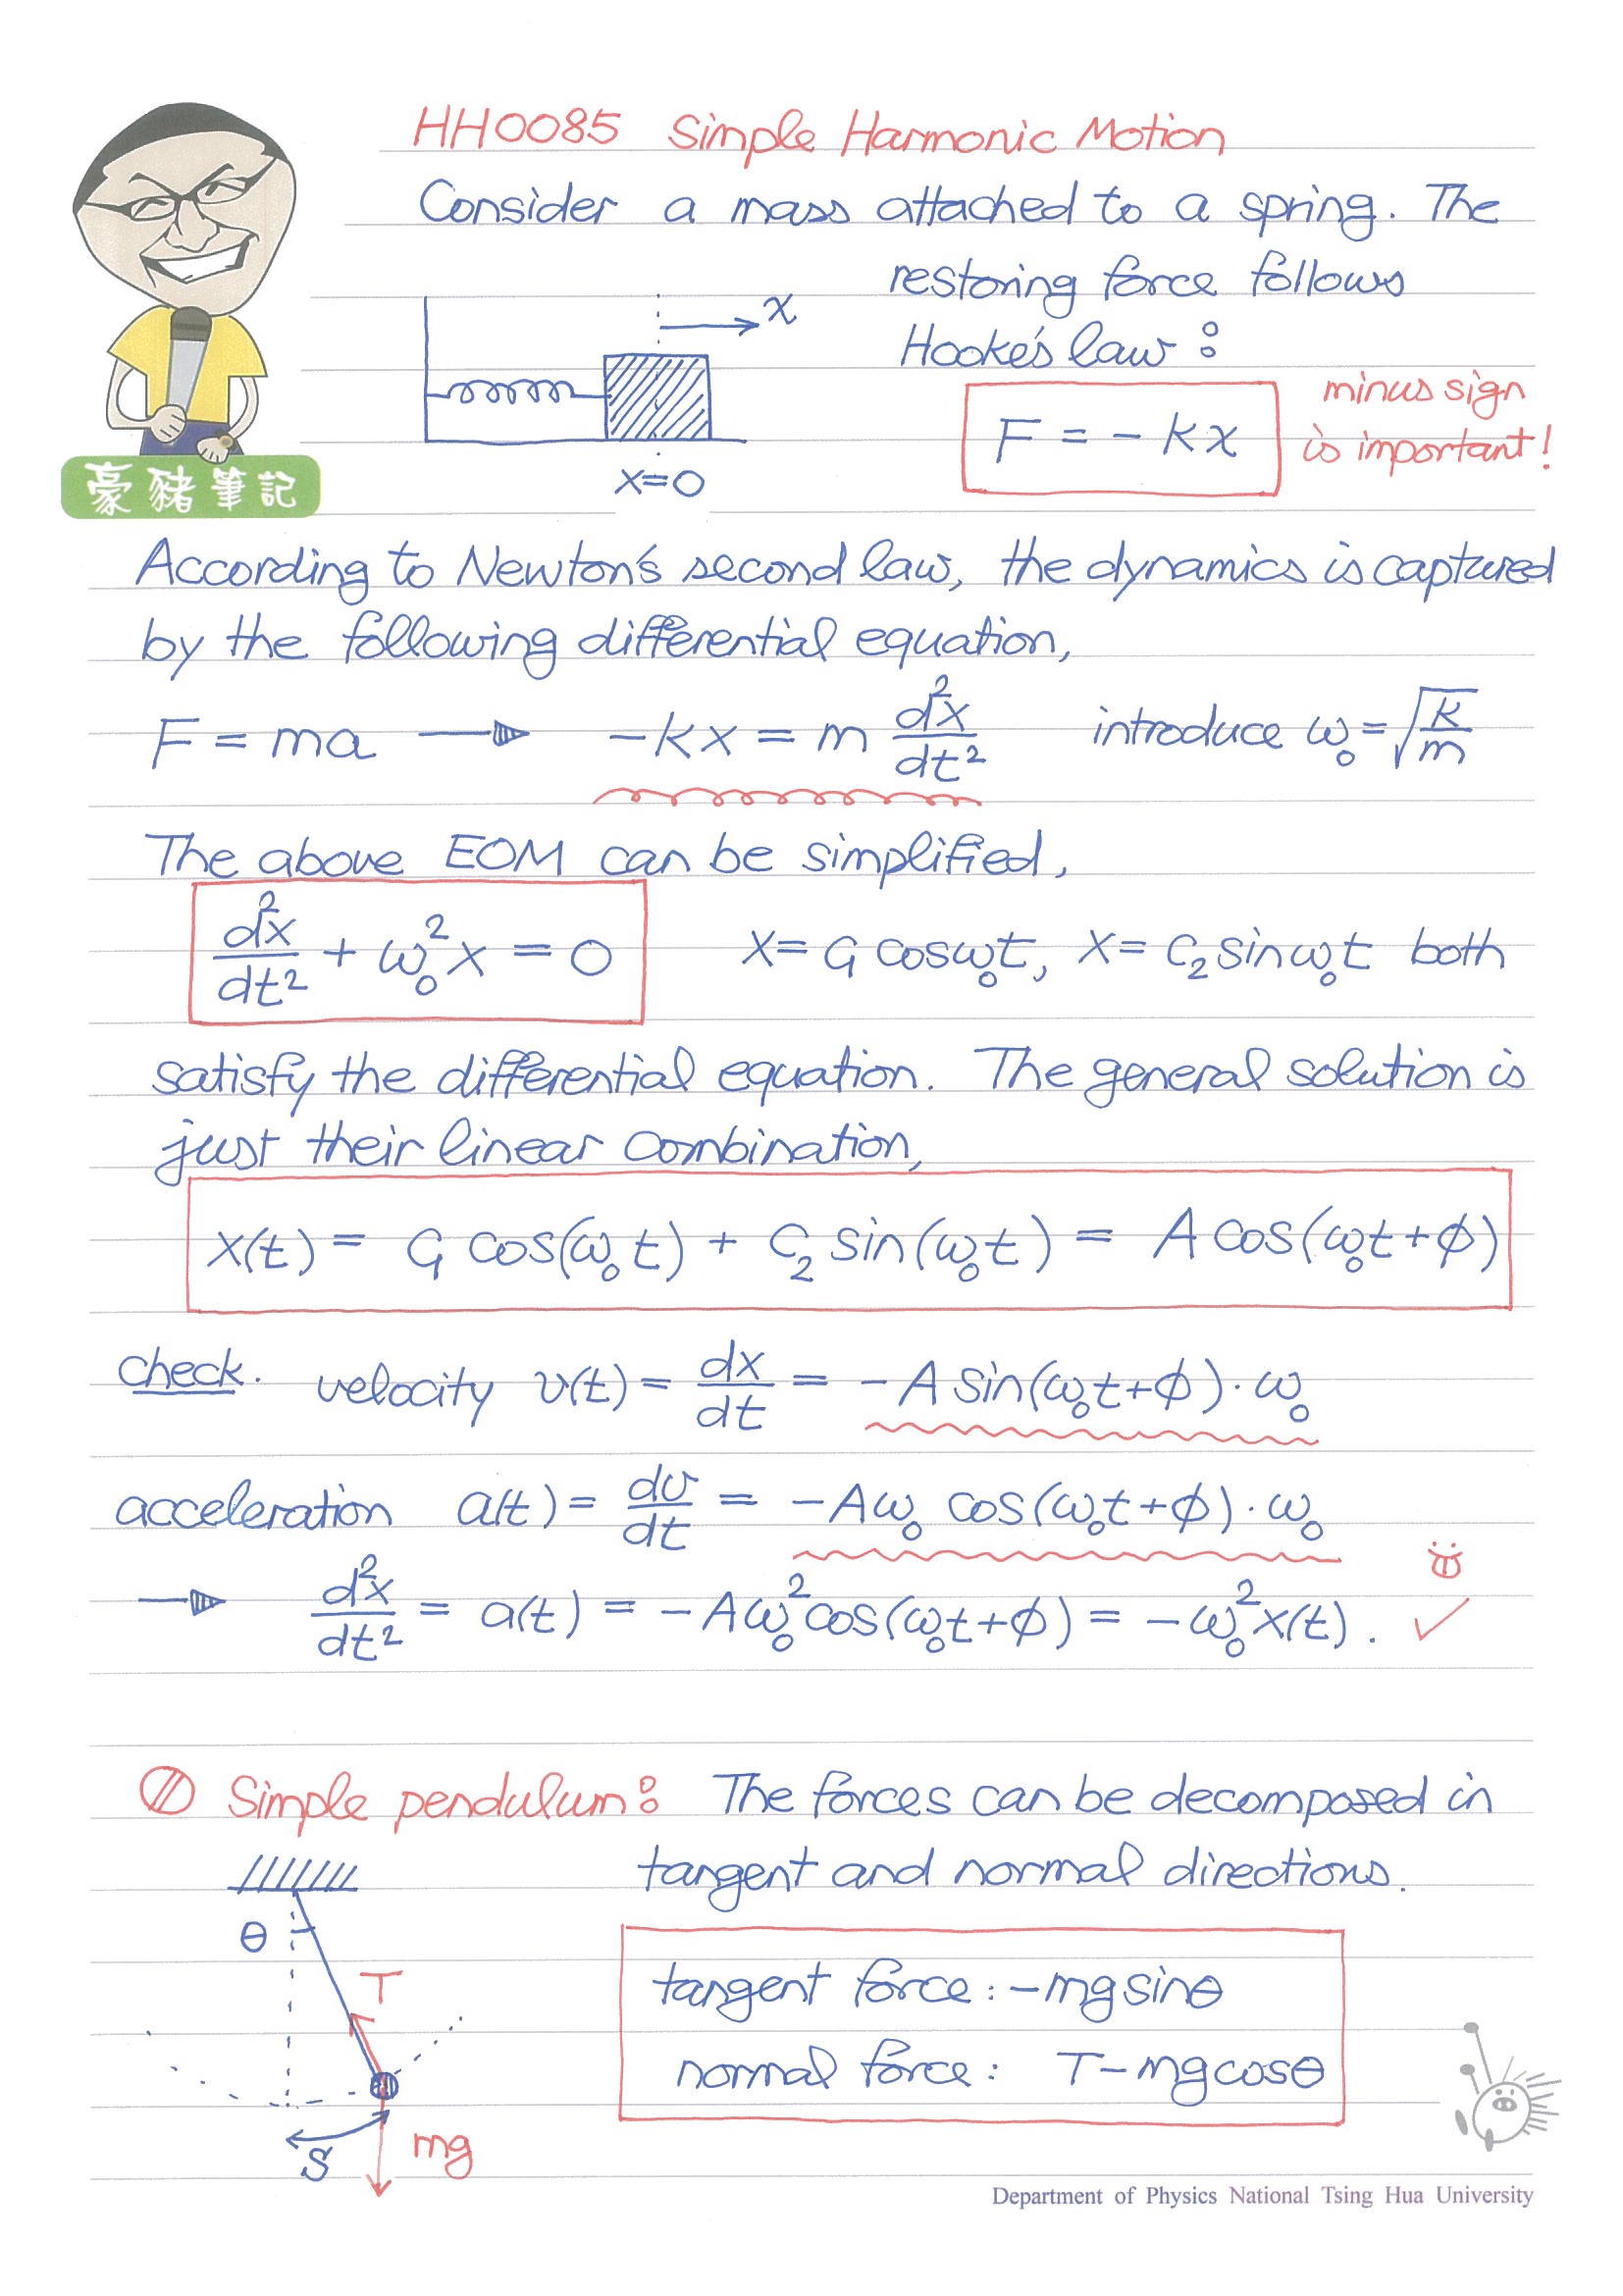 HH0085 Simple Harmonic Motion
Consider a mass attached to a spring. The
restoring force follows
x
Hooke's law:
minus sign
F = -kx
is important!
x=0
豪豬筆記
According to Newton's second law, the dynamics is captured
by the following differential equation,
F = ma → -kx = m d²x/dt² introduce ω₀ = √(k/m)
The above EOM can be simplified,
d²x/dt² + ω₀²x = 0 x = C₁ cosω₀t, x = C₂ sinω₀t both
satisfy the differential equation. The general solution is
just their linear combination,
x(t) = C₁ cos(ω₀t) + C₂ sin(ω₀t) = A cos(ω₀t+φ)
check. velocity v(t) = dx/dt = -A sin(ω₀t+φ)·ω₀
acceleration a(t) = dv/dt = -Aω₀ cos(ω₀t+φ)·ω₀
→ d²x/dt² = a(t) = -Aω₀² cos(ω₀t+φ) = -ω₀²x(t).
Simple pendulum: The forces can be decomposed in
tangent and normal directions.
θ
T
tangent force: -mg sinθ
normal force: T-mg cosθ
mg
S
Department of Physics National Tsing Hua University